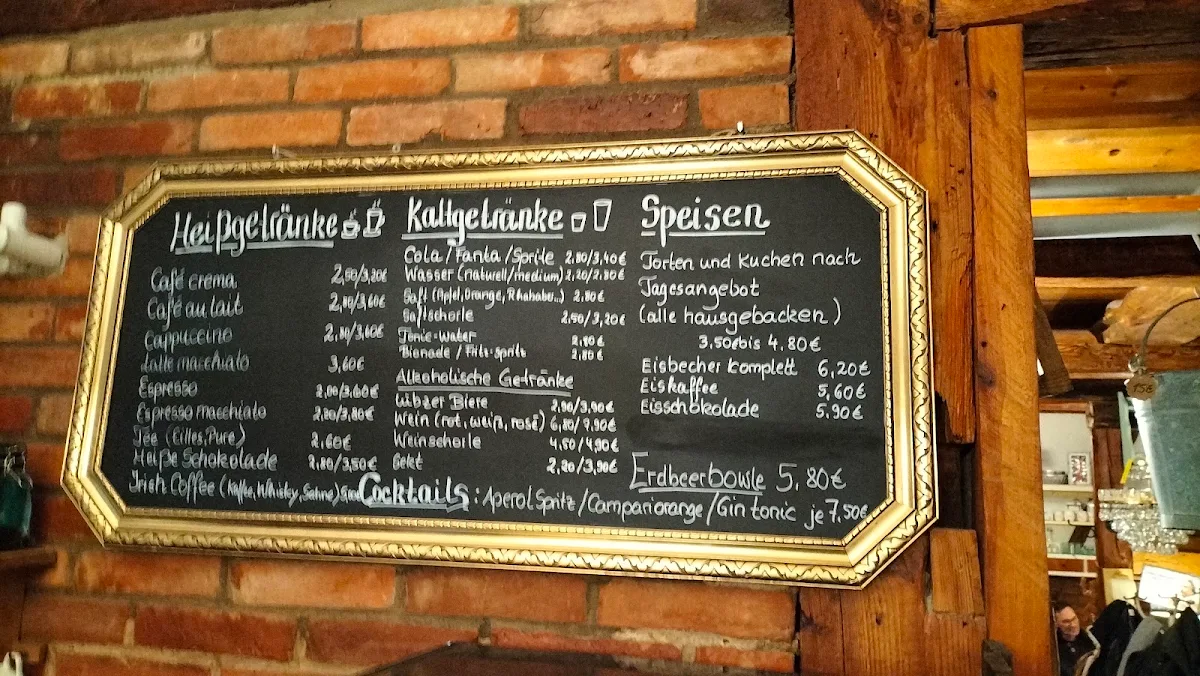 Heißgetränke
Café crema 2,50/3,20€
Café au lait 2,80/3,60€
Cappuccino 2,80/3,60€
Latte macchiato 3,60€
Espresso
Espresso macchiato
Tee (Eilles, Pure) 2,60€
Heiße Schokolade 2,80/3,50€
Irish Coffee (Kaffee, Whisky, Sahne)
Kaltgetränke
Cola / Fanta / Sprite 2,80/3,40€
Wasser (naturell/medium) 2,20/2,80€
Saft (Apfel, Orange, Rhababer..) 2,80€
Saftschorle 2,50/3,20€
Tonic-water 2,80€
Bionade / Fritz-spritz 2,80€
Alkoholische Getränke
Lübzer Biere 2,90/3,90€
Wein (rot, weiß, rosé) 6,80/7,90€
Weinschorle 4,50/4,90€
Sekt 2,20/3,90€
Speisen
Torten und Kuchen nach
Tagesangebot
(alle hausgebacken)
3,50€ bis 4,80€
Eisbecher komplett 6,20€
Eiskaffee 5,60€
Eisschokolade 5,90€
Erdbeerbowle 5,80€
Cocktails: Aperol Spritz / Campariorange / Gin tonic je 7,50€
15€